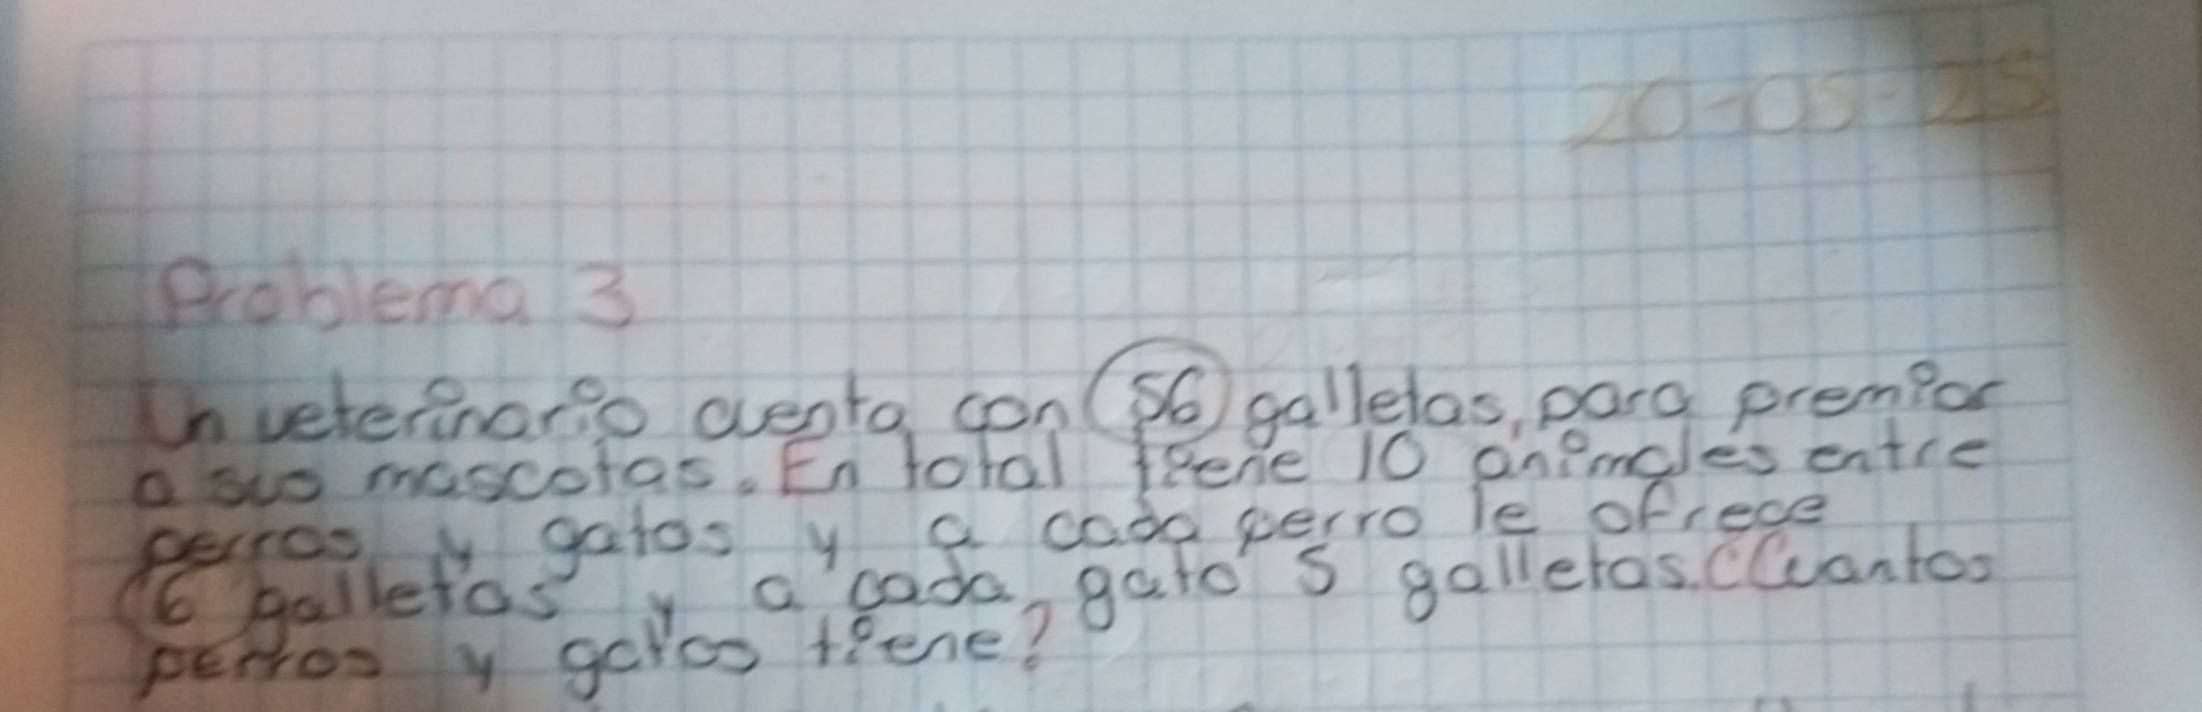 20-05-25
Problema 3
Un veterinario cuenta con 56 galletas, para premiar
a sus mascotas. En total tiene 10 animales entre
perros y gatos y a cada perro le ofrece
6 galletas y a cada gato 5 galletas. ¿Cuantos
perros y gatos tiene?